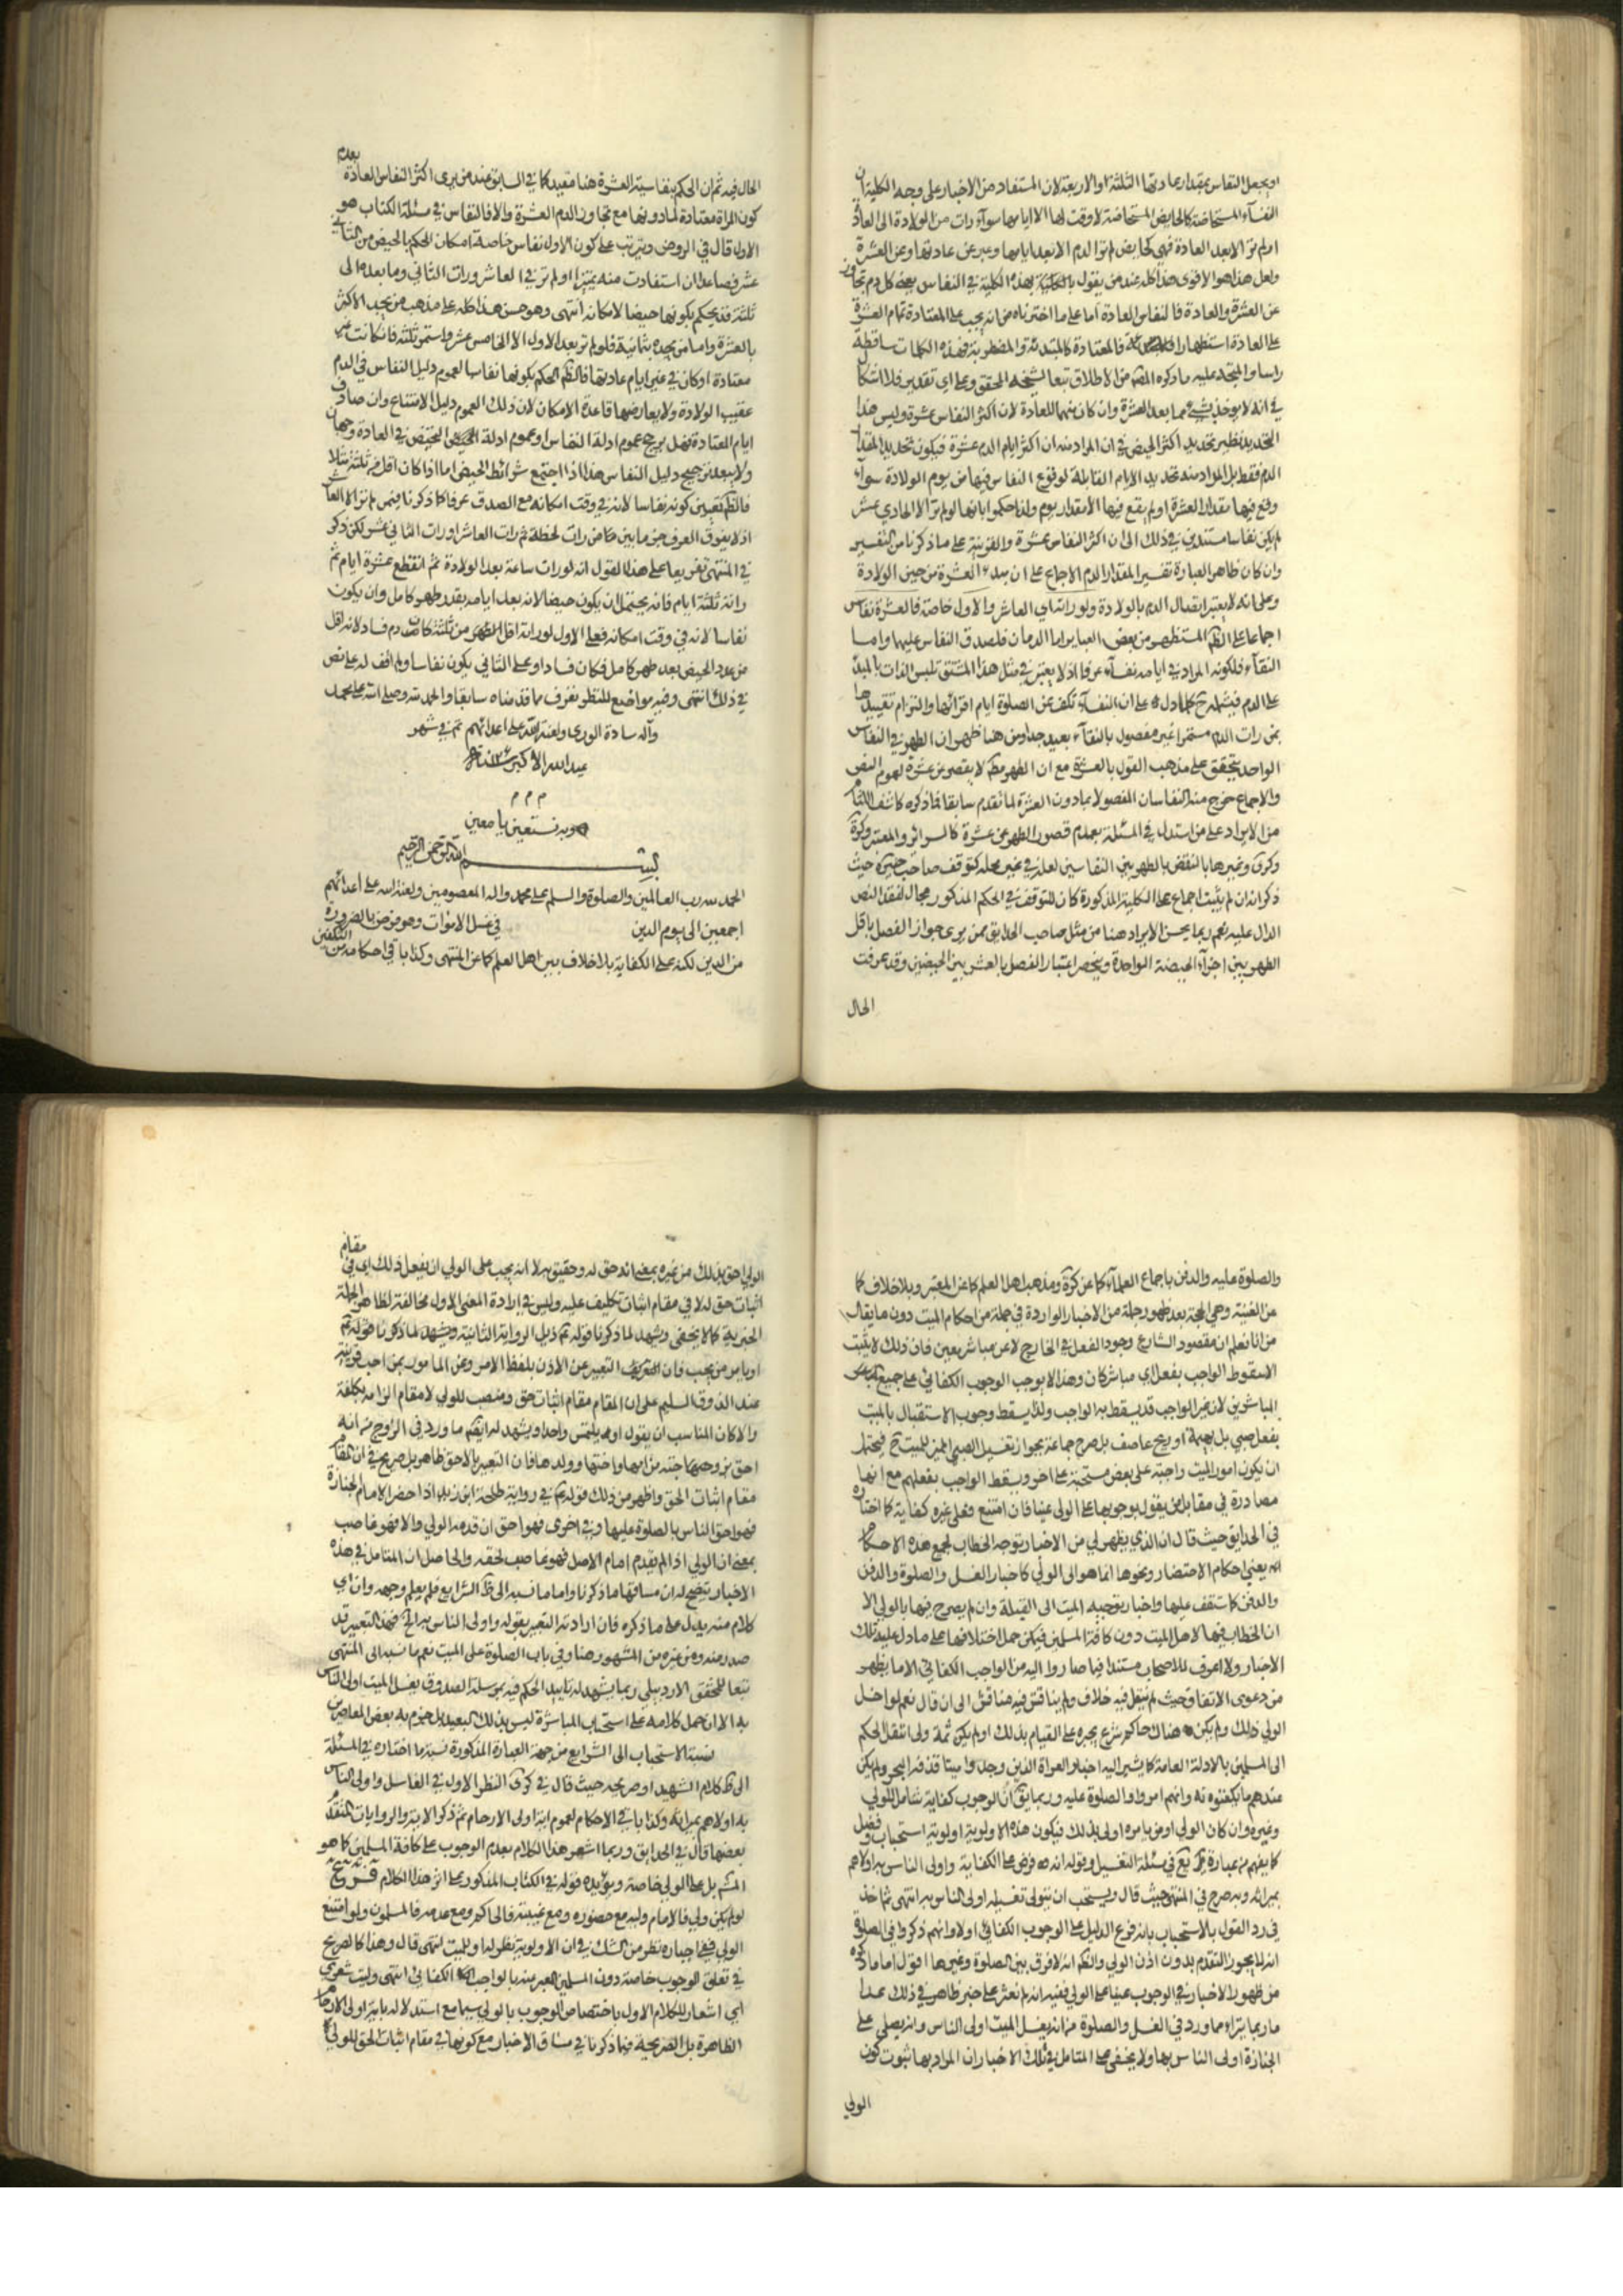 او يجعل النفاس بمقدار عادتها الثلثة او الاربعة لان المستفاد من الاخبار على وجه الكلية ان
النفسآء المستحاضة كالحايض المستحاضة لا وقت لها الا ايامها سوآء رات من الولادة الى العادة
او لم تر الا بعد العادة فهي كحايض لم تر الدم الا بعد ايامها وعبر عن عادتها وعن العشرة
ولعل هذا هو الاقوى هذا كله عند من يقول بهذه الكلية في النفاس بجعل كل دم تجاوز
عن العشرة والعادة فالنفاس العادة اما على ما اخترناه من انه يجب على المعتادة تمام العشرة
على العادة استظهارا فالمعتادة كالمبتدئة والمضطربة فهذه الكلمات ساقطة
راسا والمتجه عليه ما ذكره المص من الاطلاق تبعا لشيخه المحقق وعلى اي تقدير فلا اشكال
في انه لا يوخذ شيء مما بعد العشرة وان كان متمما للعادة لان اكثر النفاس عشرة وليس هذا
التحديد نظير تحديد اكثر الحيض في ان المراد منه ان اكثر ايام الدم عشرة فيكون تحديد المقدار
الدم فقط بل المراد منه تحديد الايام القابلة لوقوع النفاس فيها من يوم الولادة سوآء
وقع فيها بمقدار العشرة او لم يقع فيها الا بمقدار يوم ولذا حكموا بانها لو لم تر الا الحادي عشر
لم يكن نفاسا مستندين في ذلك الى ان اكثر النفاس عشرة والقرينة على ما ذكرنا من التفسير
وان كان ظاهر العبارة تفسير المقدار الدم الاجماع على ان مبدء العشرة من حين الولادة
وعلى انه لا يعتبر اتصال الدم بالولادة ولو راته اي العاشر والاول خاصة فالعشرة نفاس
اجماعا على الظ المستظهر من بعض العباير اما الدمان فلصدق النفاس عليها واما
النقآء فلكونه المراد في ايامه نفسآء عرفا اذ لا يعتبر في مثل هذا المشتق تلبس الذات بالمبدء
على الدم فيشمله ح كلما دل على ان النفسآء تكف عن الصلوة ايام اقرائها والتزام تقييدها
بمن رات الدم مستمرا غير مفصول بالنقآء بعيد جدا ومن هنا ظهر ان الطهر في النفاس
الواحد يتحقق على مذهب القول بالعشرة مع ان الطهر مط لا يقصر عن عشرة لعموم النص
والاجماع خرج منه النفاسان المفصولا بما دون العشرة لما تقدم سابقا فما ذكره كاشف اللثام
من الايراد على من استدل في المسئلة بعدم قصور الطهر عن عشرة كالسرائر والمعتبر وكرة
وكرى وغيرها بالنقض بالطهر بين النفاسين لعله في غير محله كتوقف صاحب حيث
ذكر انه ان لم يثبت اجماع على الكلية المذكورة كان للتوقف في الحكم المذكور مجال لفقد النص
الدال عليه نعم ربما يحسن الايراد هنا من مثل صاحب الحدايق ممن يرى جواز الفصل باقل
الطهر بين اجزآء الحيضة الواحدة ويخص اعتبار الفصل بالعشر بين الحيضين وقد عرفت
الحال
الحال فيه ثم ان الحكم بنفاسية العشرة هنا مقيد كما في السابق عند من يرى اكثر النفاس العادة بعدم
كون المراة معتادة لما دونها مع تجاوز الدم العشرة والا فالنفاس في مسئلة الكتاب هو
الاول قال في الروض ويترتب على كون الاول نفاس خاصة امكان الحكم بالحيض من الثاني
عشر فصاعدا ان استفادت منه تميزا او لم تر في العاشر ورات الثاني وما بعده الى
ثلثة فقد يحكم بكونها حيضا لامكانه انتهى وهو حسن هذا كله على مذهب من يجد الاكثر
بالعشرة واما من يحده بثمانية فلو لم تر بعد الاول الا الخامس عشر واستمر ثلثة فان كانت غير
معتادة او كان في غير ايام عادتها فالظ الحكم بكونها نفاسا لعموم دليل النفاس في الدم
عقيب الولادة ولا يعارضها قاعدة الامكان لان ذلك العموم دليل الامتناع وان صادف
ايام العتادة فهل يرجح عموم ادلة النفاس او عموم ادلة التحيض في العادة وجهان
ولا يبعد ترجيح دليل النفاس هذا اذا اجتمع شرائط الحيض اما اذا كان اقل من ثلثة مثلا
فالظ تعيين كونه نفاسا لانه في وقت امكانه مع الصدق عرفا كما ذكرنا فيمن لم تر الا العاشر
اذ لا يفرق العرف جزما بين من رات لحظة ثم رات العاشر او رات الثاني عشر لكن ذكر
في المنتهى تفريعا على هذا القول انه لو رات ساعة بعد الولادة ثم انقطع عشرة ايام ثم
راته ثلثة ايام فانه يحتمل ان يكون حيضا لانه بعد ايامه بقدر طهر كامل وان يكون
نفاسا لانه في وقت امكانه فعلى الاول لو راته اقل من ثلثة كان دم فساد لانه اقل
من عدد الحيض بعد طهر كامل فكان فسادا وعلى الثاني يكون نفاسا ولم اقف له على نص
في ذلك انتهى وفيه مواضع للنظر تعرف مما قدمناه سابقا والحمد لله وصلى الله على محمد
وآله سادة الورى ولعنة الله على اعدائهم تم في شهر
عيد الله الاكبر
م م م
وبه نستعين يا معين
بسم الله الرحمن الرحيم
الحمد لله رب العالمين والصلوة والسلم على محمد واله المعصومين ولعنة الله على أعدائهم
اجمعين الى يوم الدين في غسل الاموات وهو فرض بالضرورة
من الدين لكنه على الكفاية بلا خلاف بين اهل العلم كما عن المنتهى وكذا باقي احكامه من التكفين
والصلوة عليه والدفن باجماع العلمآء كما عن كرة ومذهب اهل العلم كما عن المعتبر وبلا خلاف كما
عن الغنية وهي الحجة بعد ظهور جملة من الاخبار الواردة في جملة من احكام الميت دون ما يقال
من انا نعلم ان مقصود الشارع وجود الفعل في الخارج لا عن مباشر معين فان ذلك لا يثبت
الا سقوط الواجب بفعل اي مباشر كان وهذا لا يوجب الوجوب الكفائي على جميع
المباشرين لان غير الواجب قد يسقط به الواجب ولذا يسقط وجوب الاستقبال بالميت
بفعل صبي بل بهيمة او ريح عاصف بل صرح جماعة بجواز تغسيل الصبي المميز للميت ح فيحتمل
ان يكون امور الميت واجبة على بعض مستحبة على اخر ويسقط الواجب بفعلهم مع انها
مصادرة في مقابل من يقول بوجوبها على الولي عينا فان امتنع فعلى غيره كفاية كما اختاره
في الحدايق حيث قال ان الذي يظهر لي من الاخبار توجه الخطاب لجمع هذه الاحكام
يعني احكام الاحتضار ونحوها انما هو الى الولي كاخبار الغسل والصلوة والدفن
والدفن كما ستقف عليها واخبار توجيه الميت الى القبلة وان لم يصرح فيها بالولي الا
ان الخطاب فيها لاهل الميت دون كافة المسلمين فيمكن حمل اختلافها على ما دل عليه تلك
الاخبار ولا اعرف للاصحاب مستندا فيما صاروا اليه من الواجب الكفائي الا ما يظهر
من دعوى الاتفاق حيث لم ينقل فيه خلاف ولم يناقش فيه مناقش الى ان قال نعم لو اخل
الولي ذلك ولم يكن هناك حاكم شرع يجبره على القيام بذلك او لم يكن ثمة ولي انتقل الحكم
الى المسلمين بالادلة العامة كما يشير اليه اخبار العراة الذين وجدوا ميتا قذفه البحر ولم يكن
عندهم ما يكفنوه به وانهم امروا والصلوة عليه وربما يق ان الوجوب كفاية شامل للولي
وغيره وان كان الولي او من يامره اولى بذلك فيكون هذه الاولوية اولوية استحباب وفضل
كما يفهم من عبارة يع في مسئلة التغسيل وقوله انه فرض على الكفاية واولى الناس به اولاهم
بميراثه وبه صرح في المنتهى حيث قال ويستحب ان يتولى تغسيله اولى الناس به انتهى ثم اخذ
في رد القول بالاستحباب بانه فرع الدليل على الوجوب الكفائي اولا وانهم ذكروا في الصلوة
انه لا يجوز التقدم بدون اذن الولي والظ انه لا فرق بين الصلوة وغيرها اقول اما ما ذكره
من ظهور الاخبار في الوجوب عينا على الولي ففيه انه لم نعثر على خبر ظاهر في ذلك عدا
ما ربما يتراء مما ورد في الغسل والصلوة من انه يغسل الميت اولى الناس وانه يصلي على
الجنازة اولى الناس بها ولا يخفى على المتامل في تلك الاخبار ان المراد بها ثبوت كون
الولي
الولي احق بذلك من غيره بمعنى انه حق له وحقيق به لا انه يجب على الولي ان يفعل ذلك اي في مقام
اثبات حق له لا في مقام اثبات تكليف عليه وليس في ارادة المعنى الاول مخالفة لظاهر الجملة
الخبرية كما لا يخفى ويشهد لما ذكرنا قوله ثم ذيل الرواية الثانية ويشهد لما ذكرنا قوله ثم
او يامر من يحب فان التعبير عن الاذن بلفظ الامر وعن المامور بمن احب قرينة
عند الذوق السليم على ان المقام مقام اثبات حق ومنصب للولي لا مقام الزامه بكلفة
والا كان المناسب ان يقول او يلتمس واحدا ويشهد له ايضا ما ورد في الزوج من انه
احق بزوجته من ابيها واختها وولدها فان التعبير بالاحق ظاهر بل صريح في ان المقام
مقام اثبات الحق واظهر من ذلك قوله ع في رواية طلحة ابن زيد اذا حضر الامام الجنازة
فهو احق الناس بالصلوة عليها وفي اخرى فهو احق ان قدمه الولي والا فهو غاصب
بمعنى ان الولي اذا لم يقدم امام الاصل فهو غاصب لحقه والحاصل ان المتامل في هذه
الاخبار يتضح له ان مساقها ما ذكرنا واما ما نسبه الى ظ الشرايع فلم يعلم وجهه وان اي
كلام منه يدل على ما ذكره فان اراد به التعبير بقوله واولى الناس به الخ فهذا التعبير قد
صدر منه ومن غيره من المشهور هنا وفي باب الصلوة على الميت نعم ما نسبه الى المنتهى
تبعا للمحقق الاردبيلي ربما يشهد له تاييد الحكم فيه بمرسلة الصدوق يغسل الميت اولى الناس
به الا ان حمل كلامه على استحباب المباشرة ليس بذلك البعيد بل جزم به بعض المعاصرين
نسبة الاستحباب الى الشرايع من جهة العبارة المذكورة نسبة ما اختاره في المسئلة
الى ظ كلام الشهيد او صريحه حيث قال في كرى النظر الاول في الغاسل واولى الناس
به اولاهم بميراثه وكذا باقي الاحكام لعموم اية اولى الارحام ثم ذكر الاية والروايات المتقدم
بعضها قال في الحدايق وربما اشعر هذا الكلام بعدم الوجوب على كافة المسلمين كما هو
المش بل على الولي خاصة ويؤيده قوله في الكتاب المذكور على اثر هذا الكلام فرع
لو لم يكن ولي فالامام وليه مع حضوره ومع غيبته فالحاكم ومع عدمه فالمسلمون ولو امتنع
الولي ففي اجباره نظر من الشك في ان الاولوية نظر له او للميت انتهى قال وهذا كالصريح
في تعلق الوجوب خاصة دون المسلمين المعبر عنه بالواجب الكفائي انتهى وليت شعري
اي اشعار للكلام الاول باختصاص الوجوب بالولي سيما مع استدلاله باية اولى الارحام
الظاهرة بل الصريحة فيما ذكرنا في مساق الاخبار مع كونها في مقام اثبات الحق للولي